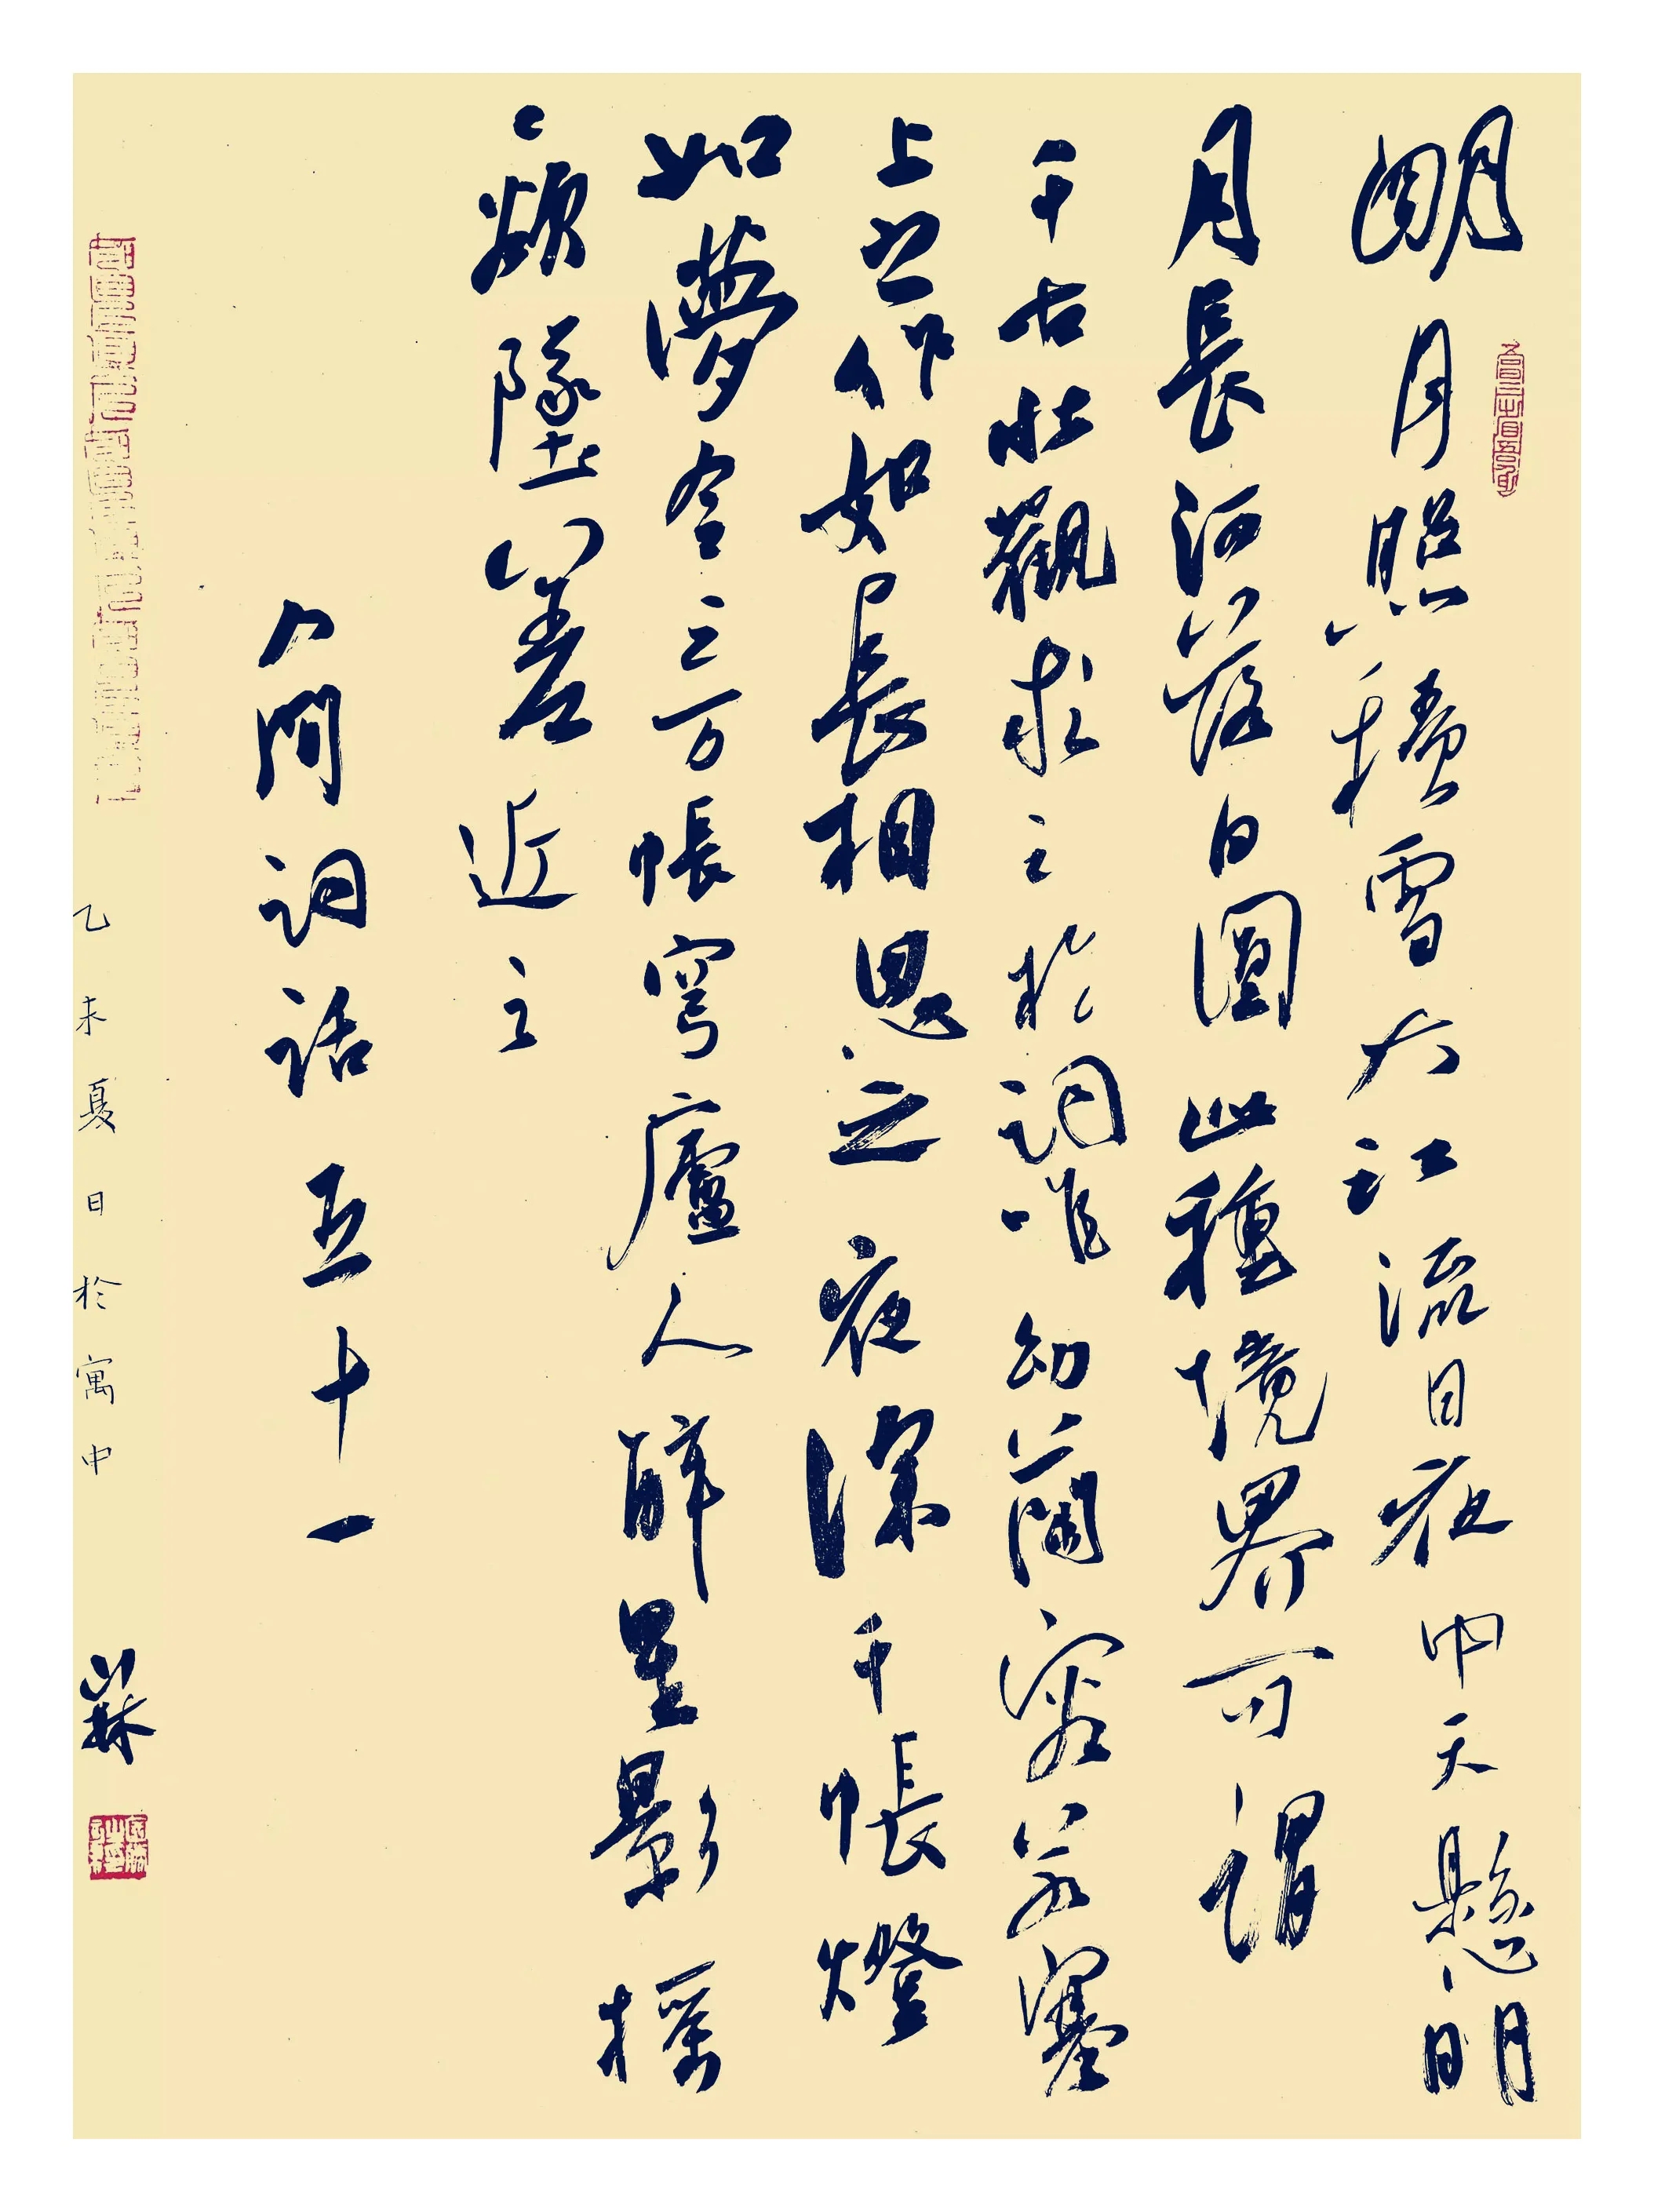 明月照積雪大江流日夜中天懸明
月長河落日圓此種境界可謂
千古壯觀求之於詞唯納蘭容若塞
上之作如長相思之夜深千帳燈
如夢令之万帳穹廬人醉星影搖
々欲墜差近之
人間詞話 五十一
乙未夏日於寓中